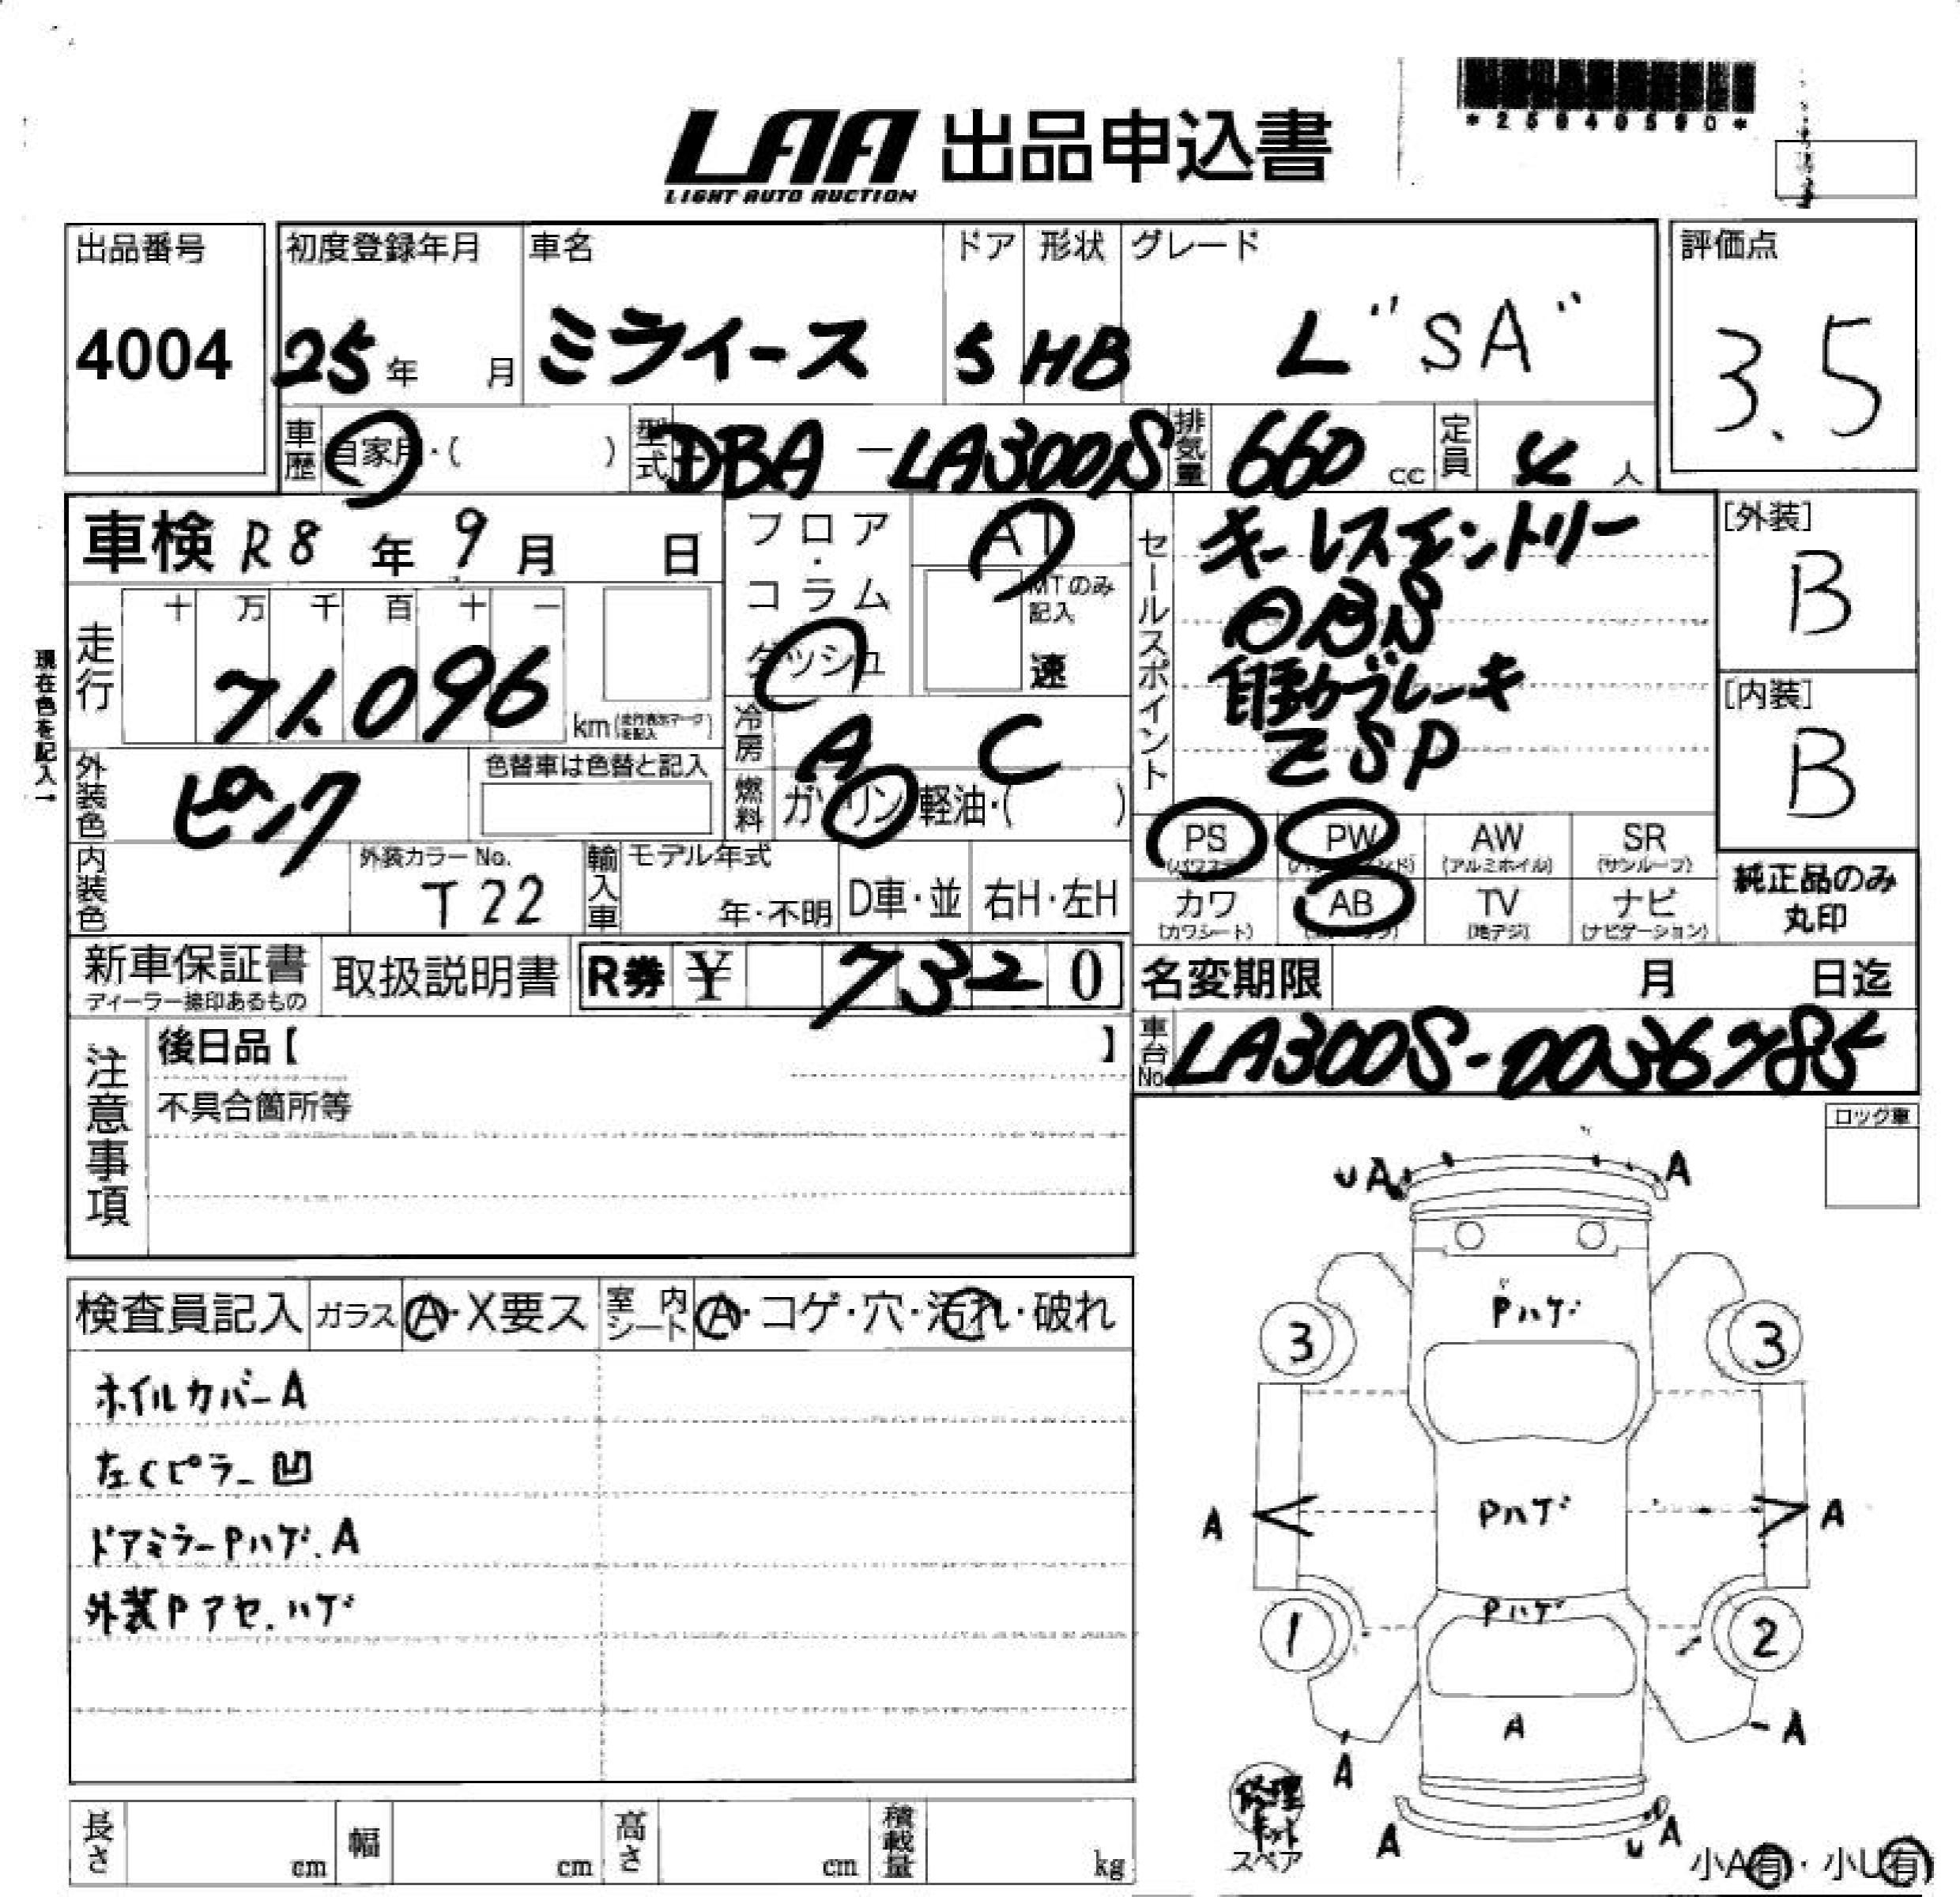 *25040590*
LAA 出品申込書
LIGHT AUTO AUCTION
出品番号 初度登録年月 車名 ドア 形状 グレード 評価点
4004 25年 月 ミライース 5 HB L "SA" 3.5
車歴 自家用・( ) 型式 DBA-LA300S 排気量 660 cc 定員 4 人
車検 R8年 9月 日 フロア・コラム ダッシュ AT
MTのみ記入 速
セールスポイント キーレスエントリー
ABS
自動ブレーキ
ESP
[外装]
B
[内装]
B
現在色を記入→
走行 十 万 千 百 十 一
71.096 km(走行表示マークを記入)
冷房 A C
外装色 ピンク 色替車は色替と記入
燃料 ガソリン 軽油・( )
PS (パワステ) PW AW (アルミホイル) SR (サンルーフ)
内装色 外装カラーNo. T22 輸入車 モデル年式 年・不明 D車・並 右H・左H
カワ (カワシート) AB TV (地デジ) ナビ (ナビゲーション)
純正品のみ
丸印
新車保証書 取扱説明書 R券 ¥ 7320
ディーラー捺印あるもの
名変期限 月 日迄
注意事項 後日品【 】
車台No. LA300S-0036785
不具合箇所等
ロック車
検査員記入 ガラス A・X要ス 室内シート A・コゲ・穴・汚れ・破れ
ホイルカバーA
左Cピラー凹
ドアミラーPハゲ.A
外装Pアセ.ハゲ
U A A
Pハゲ
3 3
A Pハゲ A
Pハゲ
1 2
A
A A
修理キット
スペア
A U A
小A有・小U有
長さ cm 幅 cm 高さ cm 積載量 kg